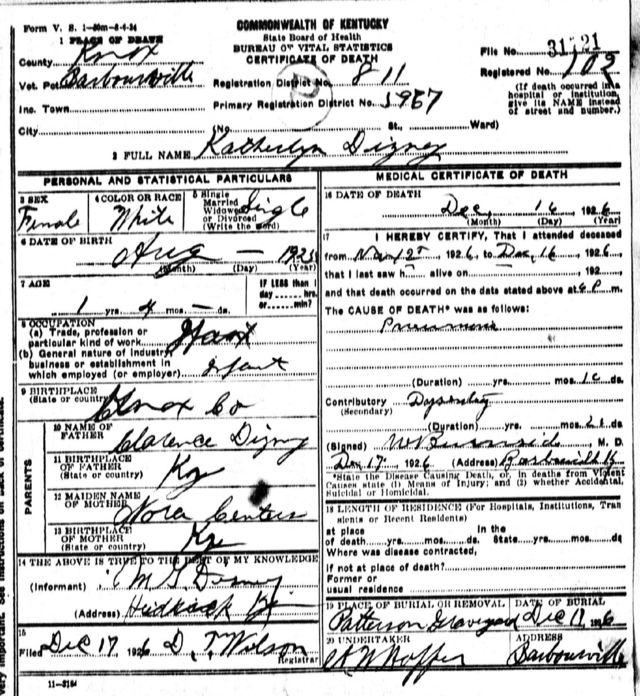 Form V. S. 1-50m-8-4-24
COMMONWEALTH OF KENTUCKY
State Board of Health
BUREAU OF VITAL STATISTICS
CERTIFICATE OF DEATH
1 PLACE OF DEATH
County Knox
Vot. Pct. Barbourville
Inc. Town
City (No St., Ward)
Registration District No. 811
Primary Registration District No. 5967
File No. 31521
Registered No. 102
(If death occurred in a
hospital or institution,
give its NAME instead
of street and number.)
2 FULL NAME Katherlyn Dizney
PERSONAL AND STATISTICAL PARTICULARS
3 SEX Female
4 COLOR OR RACE White
5 Single
Married
Widowed
or Divorced
(Write the word)
Single
6 DATE OF BIRTH
Aug — 1925
(Month) (Day) (Year)
7 AGE
1 yrs 4 mos — ds
IF LESS than 1
day hrs.
or min?
8 OCCUPATION
(a) Trade, profession or
particular kind of work
(b) General nature of industry
business or establishment in
which employed (or employer) Infant
9 BIRTHPLACE
(State or country) Knox Co
PARENTS
10 NAME OF
FATHER Clarence Dizney
11 BIRTHPLACE
OF FATHER
(State or country) Ky
12 MAIDEN NAME
OF MOTHER Nora Centers
13 BIRTHPLACE
OF MOTHER
(State or country) Ky
14 THE ABOVE IS TRUE TO THE BEST OF MY KNOWLEDGE
(Informant) M S Dizney
(Address) Ky
15
Filed Dec 17 1926 D. T. Wilson
Registrar
11-3184
MEDICAL CERTIFICATE OF DEATH
16 DATE OF DEATH
Dec. 16 1926
(Month) (Day) (Year)
17 I HEREBY CERTIFY, That I attended deceased
from Nov 25 1926, to Dec. 16 1926
that I last saw h alive on 192
and that death occurred on the date stated above at 6 P. m.
The CAUSE OF DEATH* was as follows:
Pneumonia
(Duration) yrs. mos. 10 ds.
Contributory Dysentery
(Secondary)
(Duration) yrs. mos. 21 ds.
(Signed) W Burnside M. D.
Dec 17 1926 (Address) Barbourville Ky
*State the Disease Causing Death, or, in deaths from Violent
Causes state (1) Means of Injury; and (2) whether Accidental,
Suicidal or Homicidal.
18 LENGTH OF RESIDENCE (For Hospitals, Institutions, Tran
sients or Recent Residents)
at place In the
of death yrs. mos. ds. State yrs. mos. ds.
Where was disease contracted,
if not at place of death?
Former or
usual residence
19 PLACE OF BURIAL OR REMOVAL DATE OF BURIAL
Patterson Graveyard Dec 17, 1926
20 UNDERTAKER ADDRESS
Barbourville